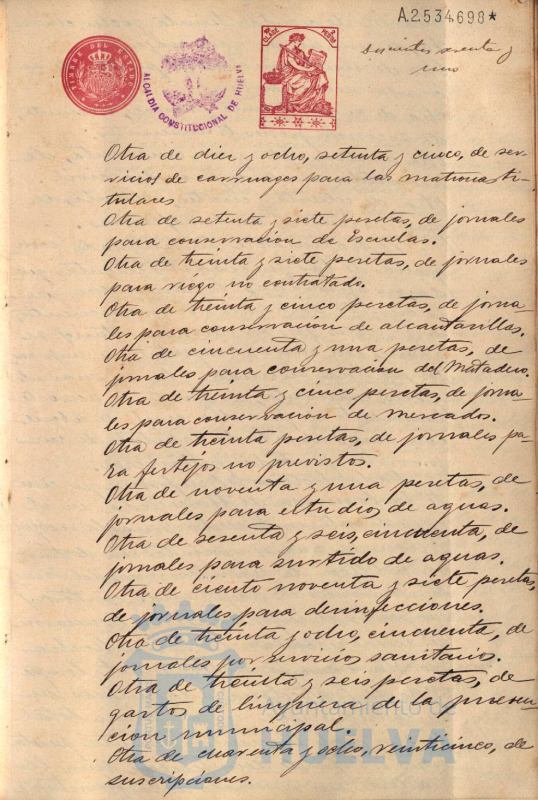 A.2534698*
TIMBRE DEL ESTADO
ALCALDIA CONSTITUCIONAL DE HUELVA
CLASE
PESETAS
Doscientos sesenta y
uno
Otra de diez y ocho, setenta y cinco, de ser-
vicios de carruages para las matronas ti-
tulares
Otra de setenta y siete pesetas, de jornales
para conservación de Escuelas.
Otra de treinta y siete pesetas, de jornales
para riego no contratado.
Otra de treinta y cinco pesetas, de jorna-
les para conservación de alcantarillas.
Otra de cincuenta y una pesetas, de
jornales para conservacion del Matadero.
Otra de treinta y cinco pesetas, de jorna-
les para conservación de mercados.
Otra de treinta pesetas, de jornales pa-
ra festejos no previstos.
Otra de noventa y una pesetas, de
jornales para estudios de aguas.
Otra de sesenta y seis, cincuenta, de
jornales para surtido de aguas.
Otra de ciento noventa y siete pesetas,
de jornales para desinfecciones.
Otra de treinta y ocho, cincuenta, de
jornales por servicios sanitarios.
Otra de treinta y seis pesetas, de
gastos de limpieza de la preven-
cion municipal.
Otra de cuarenta y ocho, veinticinco, de
suscripciones.
Ayuntamiento de
HUELVA